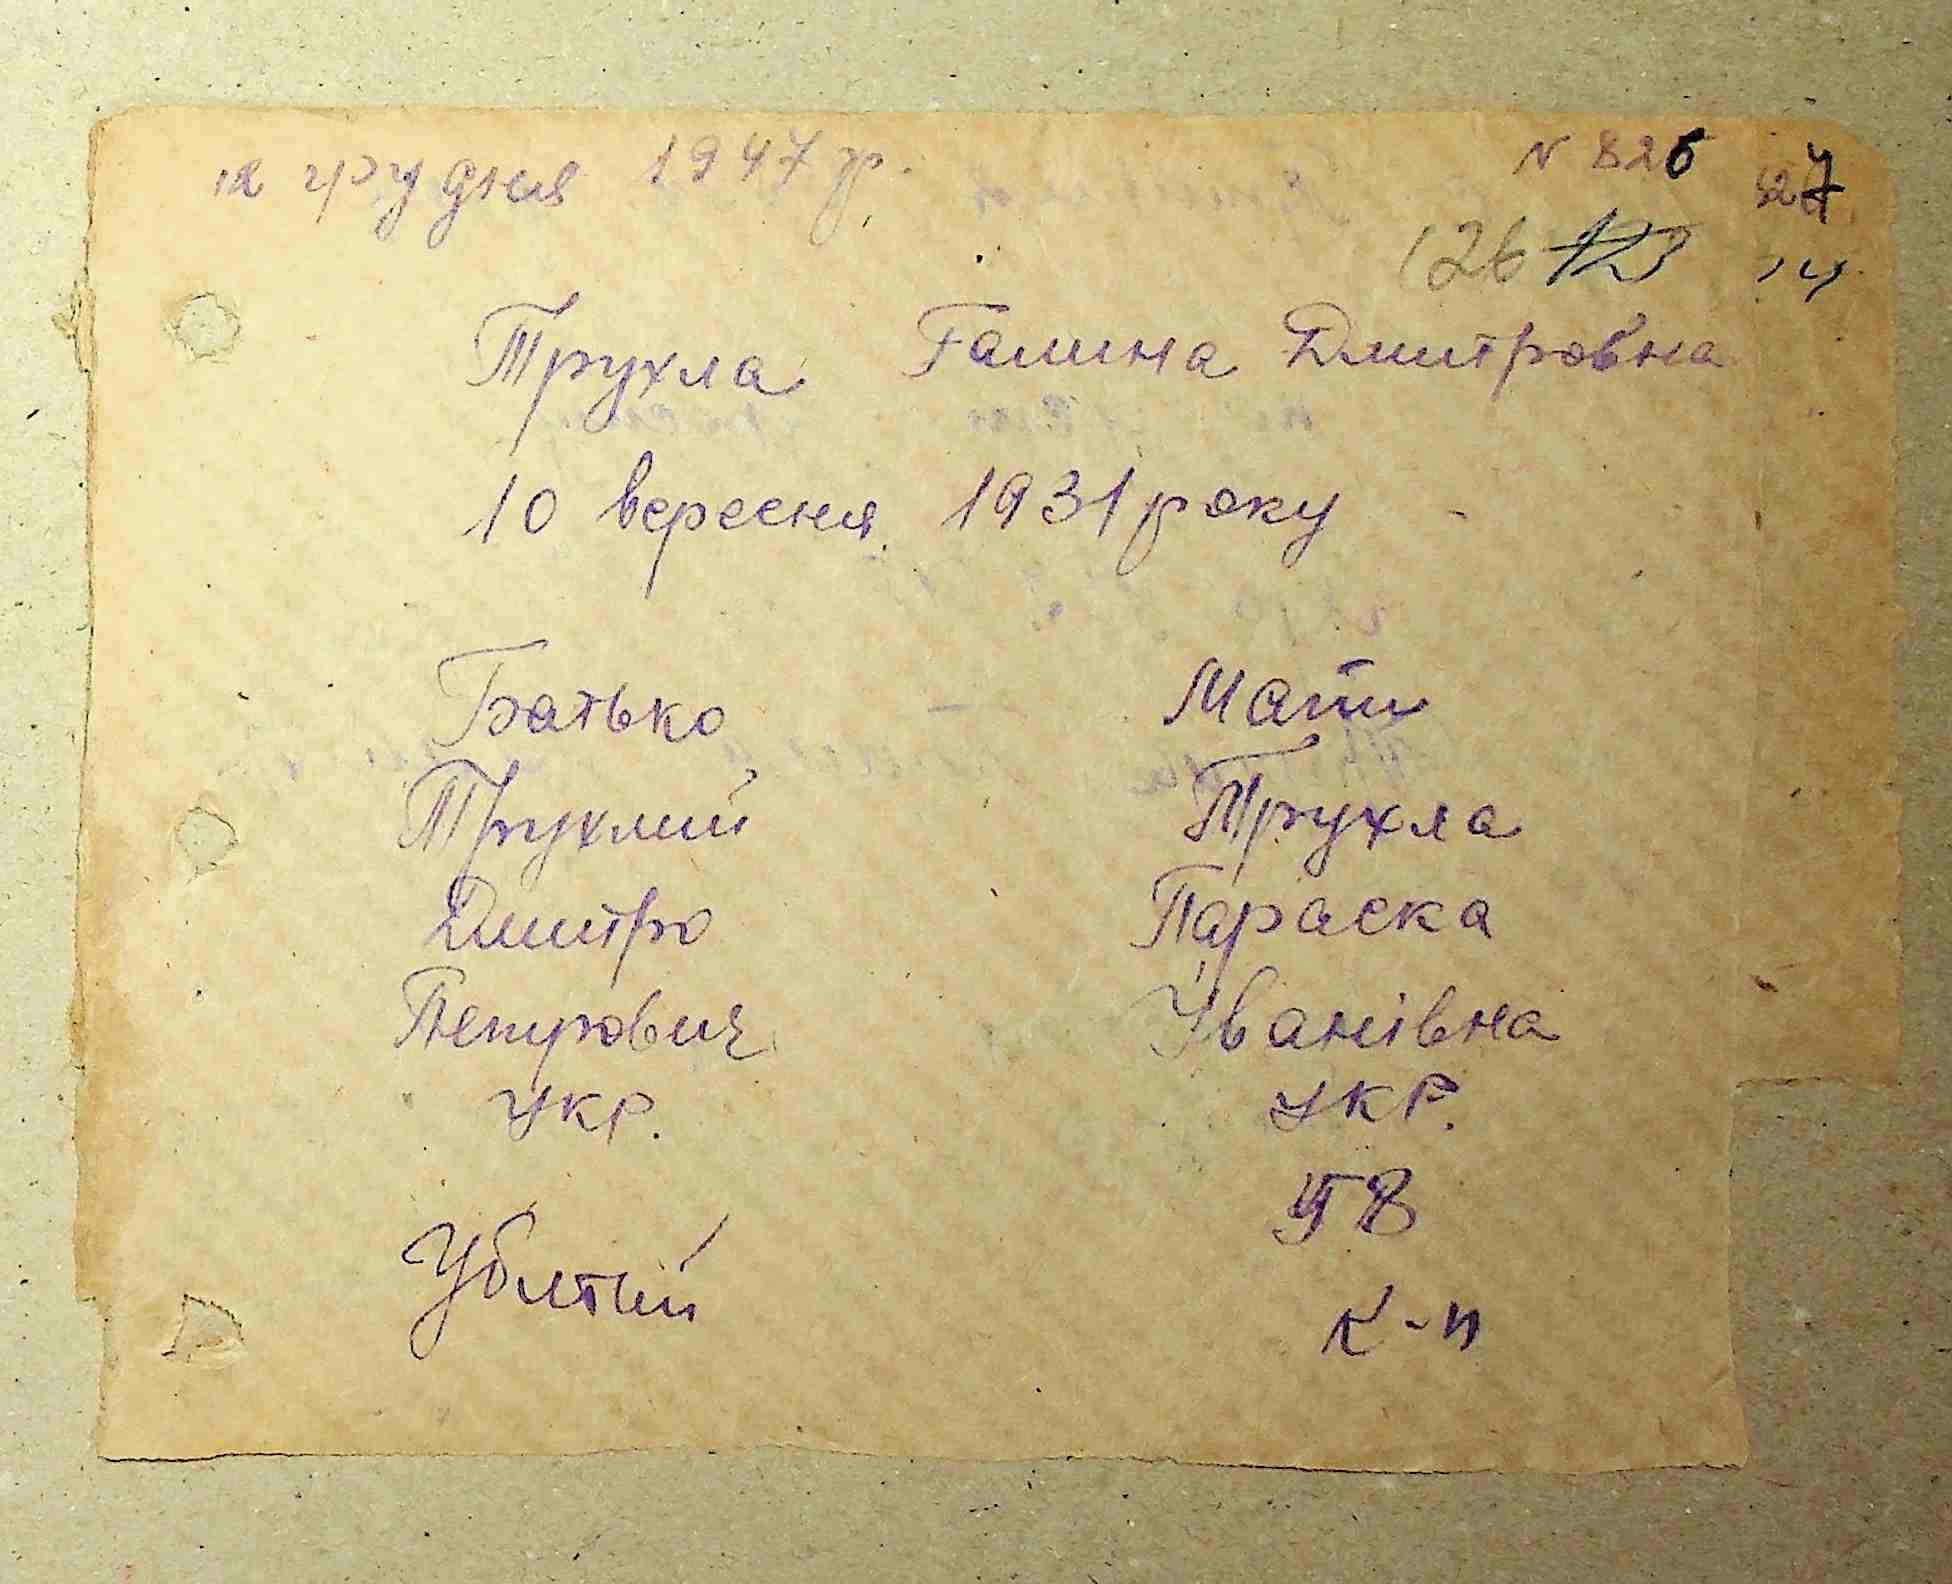 12 грудня 1947 р. N 826 827
126 12 14
Трухла Галина Дмитровна
10 вересня 1931 року
Батько Мати
Трухлий Трухла
Дмитро Параска
Петрович Іванівна
укр. укр.
Убитий 48
к-п